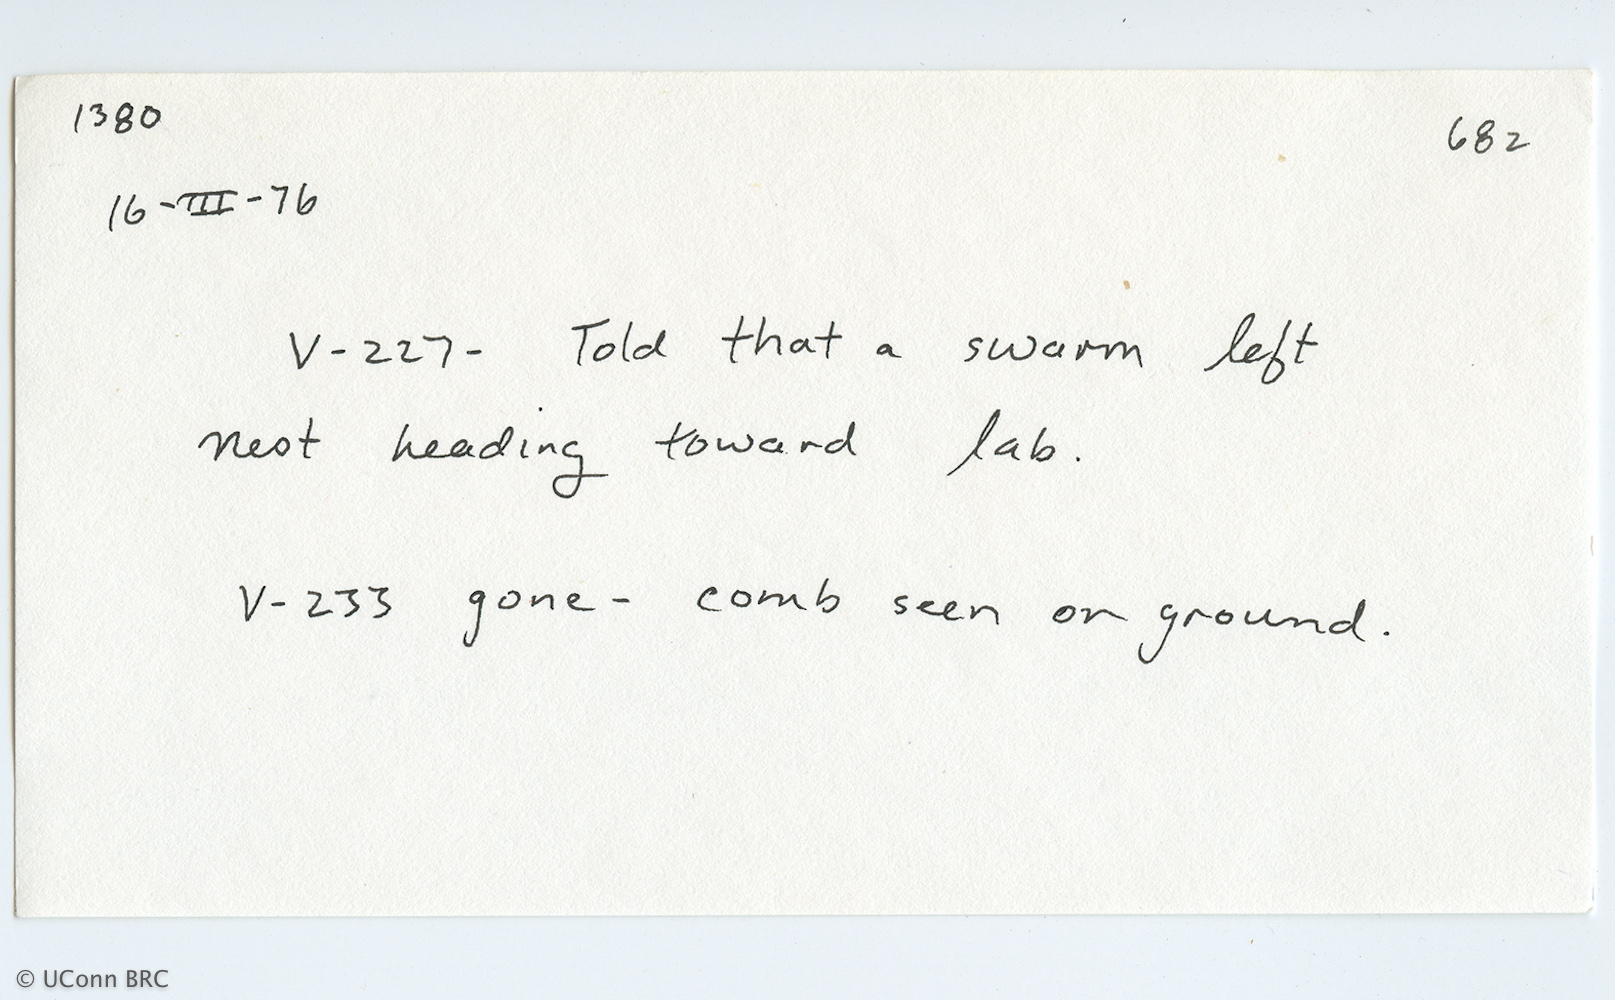 1380
682
16-III-76
V-227- Told that a swarm left
nest heading toward lab.
V-233 gone- comb seen on ground.
© UConn BRC